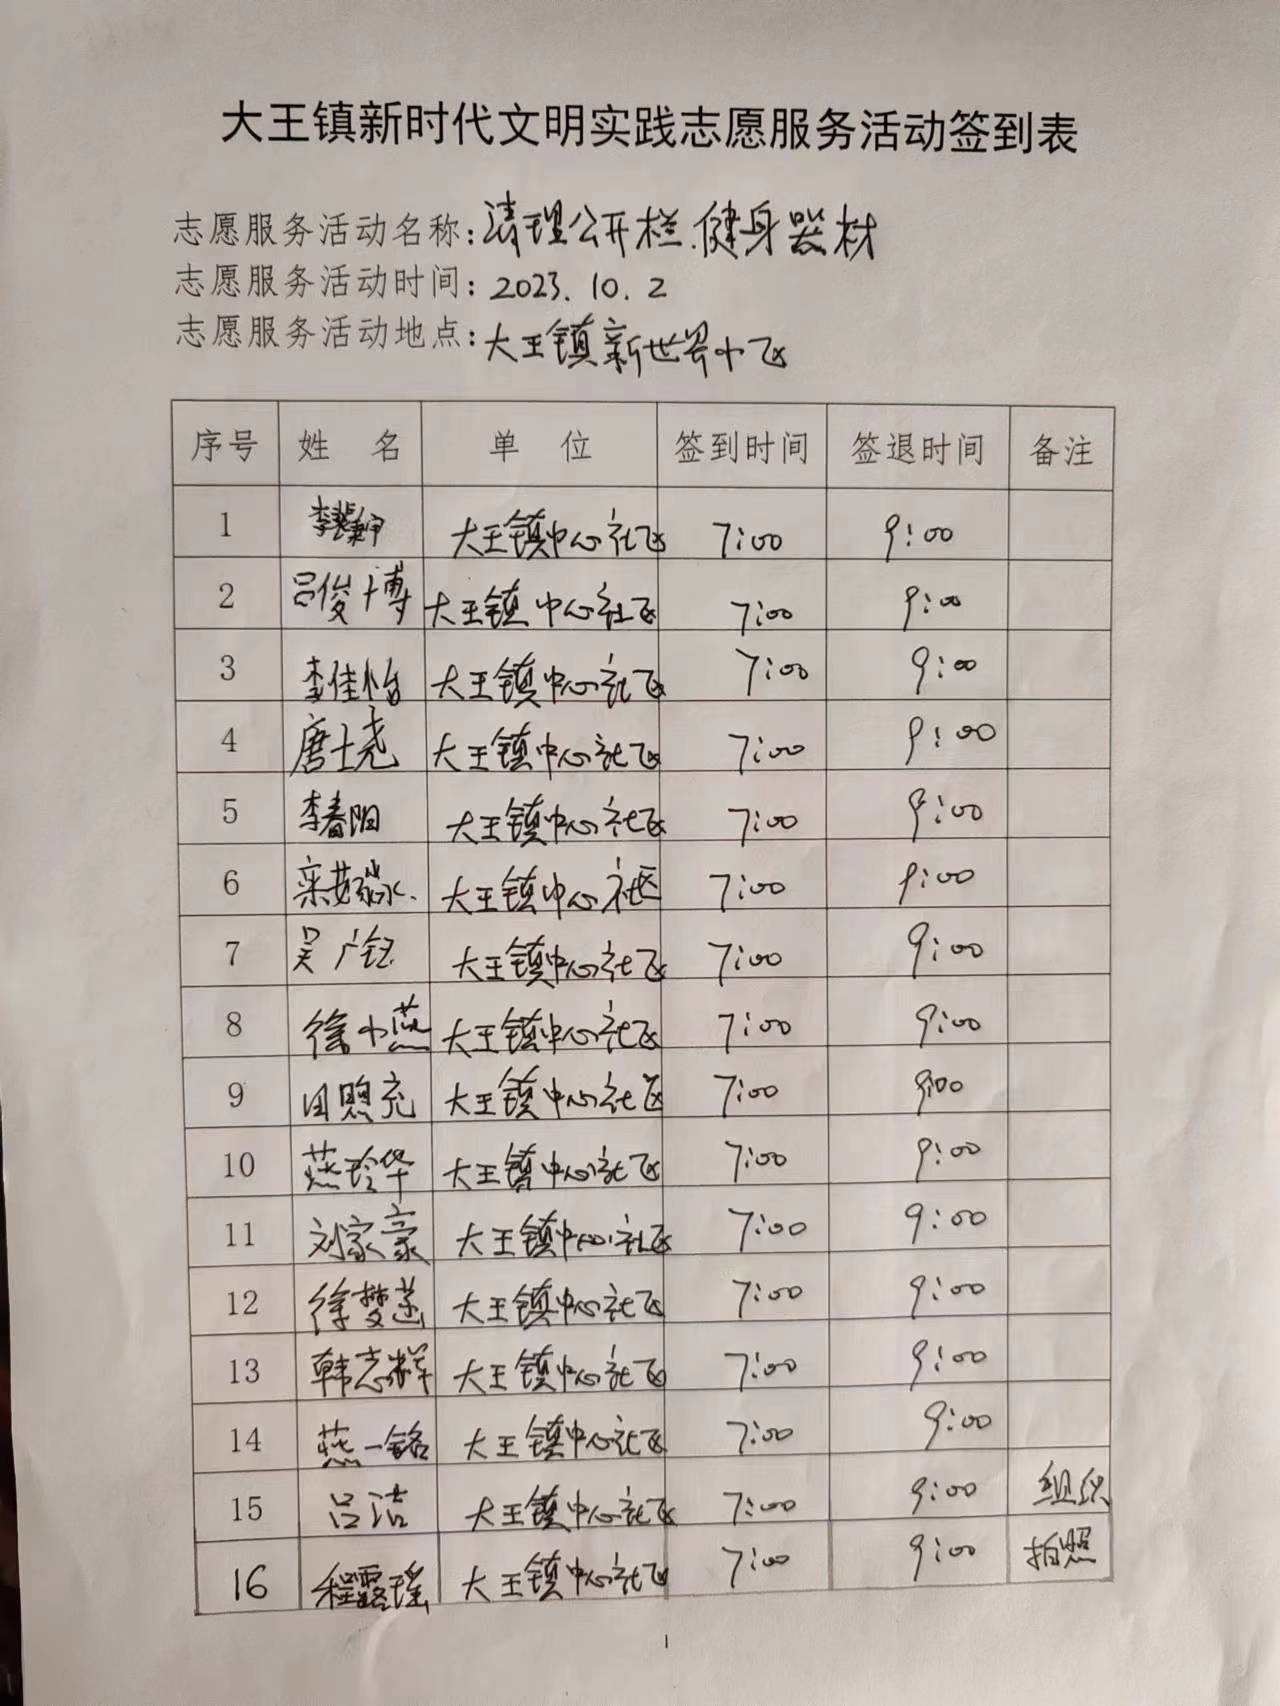 大王镇新时代文明实践志愿服务活动签到表
志愿服务活动名称:清理公开栏、健身器材
志愿服务活动时间:2023.10.2
志愿服务活动地点:大王镇新世界小区
序号 姓 名 单 位 签到时间 签退时间 备注
1 李 大王镇中心社区 7:00 9:00
2 吕俊博 大王镇中心社区 7:00 9:00
3 李佳怡 大王镇中心社区 7:00 9:00
4 唐士尧 大王镇中心社区 7:00 9:00
5 李春阳 大王镇中心社区 7:00 9:00
6 大王镇中心社区 7:00 9:00
7 吴广钰 大王镇中心社区 7:00 9:00
8 徐小燕 大王镇中心社区 7:00 9:00
9 田照充 大王镇中心社区 7:00 9:00
10 燕玲华 大王镇中心社区 7:00 9:00
11 刘家豪 大王镇中心社区 7:00 9:00
12 徐梦莲 大王镇中心社区 7:00 9:00
13 韩志祥 大王镇中心社区 7:00 9:00
14 燕一铭 大王镇中心社区 7:00 9:00
15 吕洁 大王镇中心社区 7:00 9:00 组织
16 程露瑶 大王镇中心社区 7:00 9:00 拍照
1